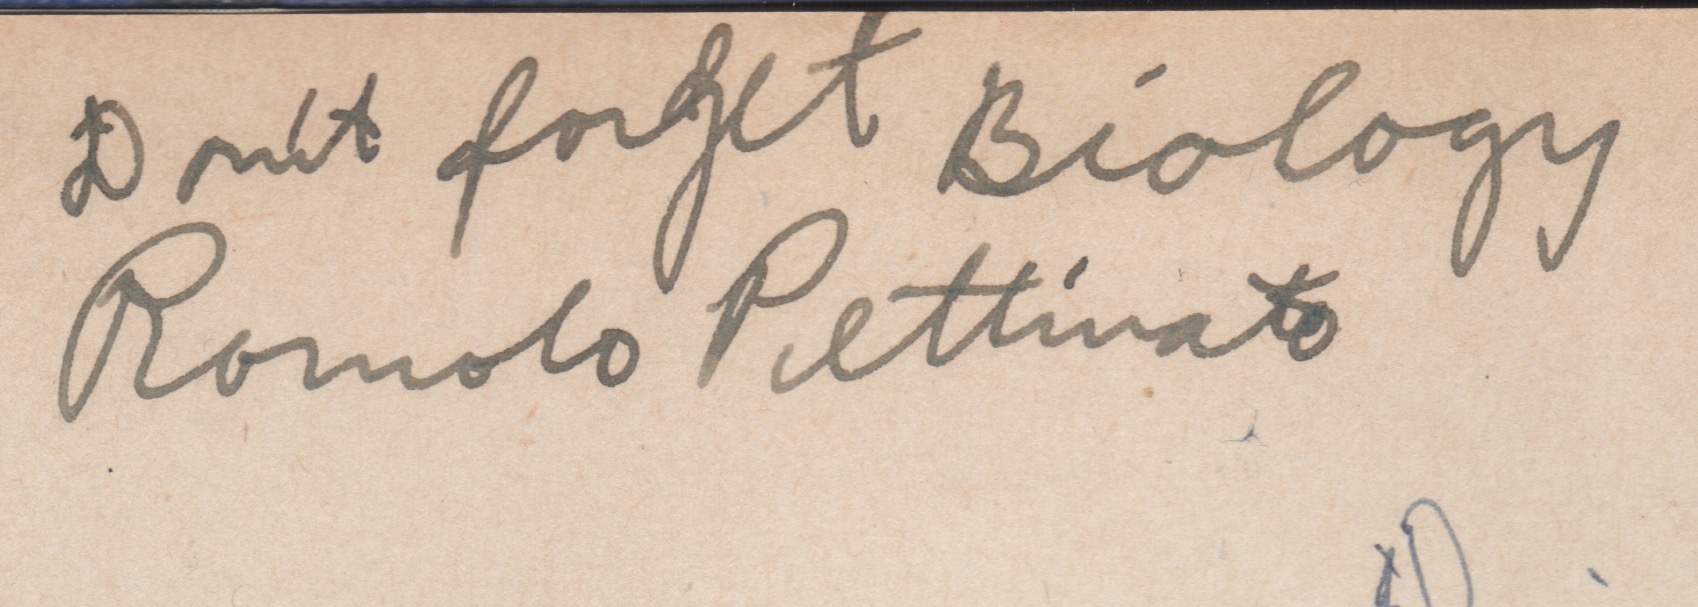 Don't forget Biology
Romolo Pettinato